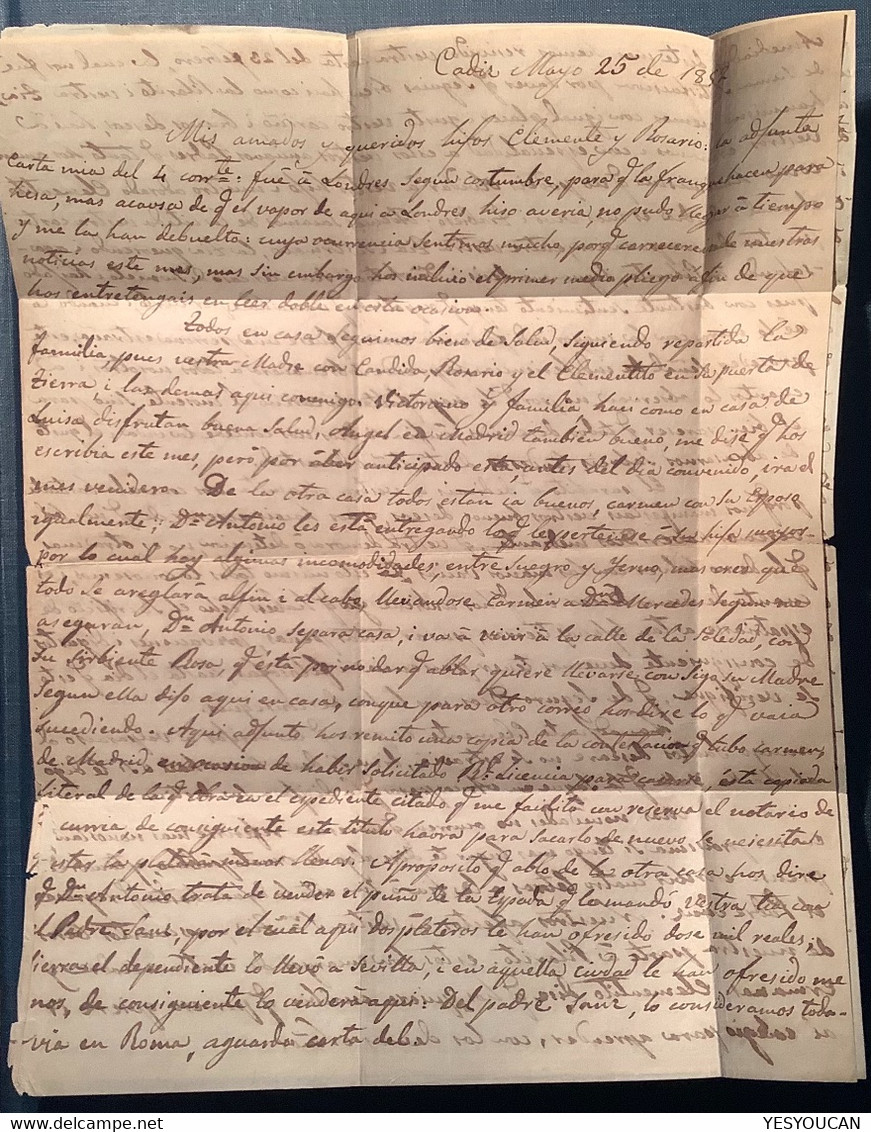 Cadis Mayo 25 de 18
Mis amados y queridos hijos Clemente y Rosario: la adjunta
Carta mia del 4 corrte: fué à Londres segun costumbre, para q la franquehacen para
hesa, mas acausa de q el vapor de aqui a Londres hiso averia, no pudo llegar à tiempo
y me la han debuelto: cuya ocurrencia sentimos mucho, porq carrecereis de nuestras
noticias este mes, mas sin embargo hos incluio el primer medio pliego àfin de que
hos entretengais en leer doble en esta ocasion.
Todos en casa seguimos bien de Salud, siguiendo repartida la
familia, pues vestra Madre con Candida, Rosario y el Clementito en Sn puerta de
tierra, i las demas aqui conmigo. Victoriano y familia haci como en casa de
Luisa disfrutan buena Salud, Angel en Madrid tambien bueno, me dise q hos
escribia este mes, pero por aber anticipado esta, antes del dia convenido, ira el
mes venidero. De la otra casa todos estan ia buenos, carmen con su Esposo
igualmente; Dn Antonio les está entregando lo q le pertense à los hijos mayos-
por lo cual hay algunas incomodidades entre Suegro y Yerno, mas creo que
todo se areglarà alfin i al cabo, llevandose Carmen a Dña Mercedes segun me
aseguran, Dn Antonio separa casa, i va à vivir à la calle de la Soledad, con
su Sirbiente Rosa, q està por no dar q ablar quiere llevarse con sigo su Madre
segun ella dijo aqui en casa, conque para otro correo hos dire lo q vaia
sucediendo. Aqui adjunto hos remito una copia de la contestacion q tubo Carmen,
de Madrid, en ocasion de haber Solicitado Rl Licencia para casarse, està copiada
literal de la q obra en el espediente citado q me facilitó con reserva el notario de
curria de consiguiente este titulo haora para sacarlo de nuevo se necesita
estar la menos llenas. Aproposito q ablo de la otra casa hos dire
q Dn Antonio trata de vender el puño de la Espada q lo mandó vestra tia con
l Padre Sanz, por el cual aqui dos plateros le han ofresido dose mil reales,
ierra el dependiente lo llevó a Sevilla, i en aquella ciudad le han ofresido me
nos, de consiguiente lo venderà aqui. Del padre Sanz, lo consideramos toda-
via en Roma, aguardà carta del.
YESYOUCAN